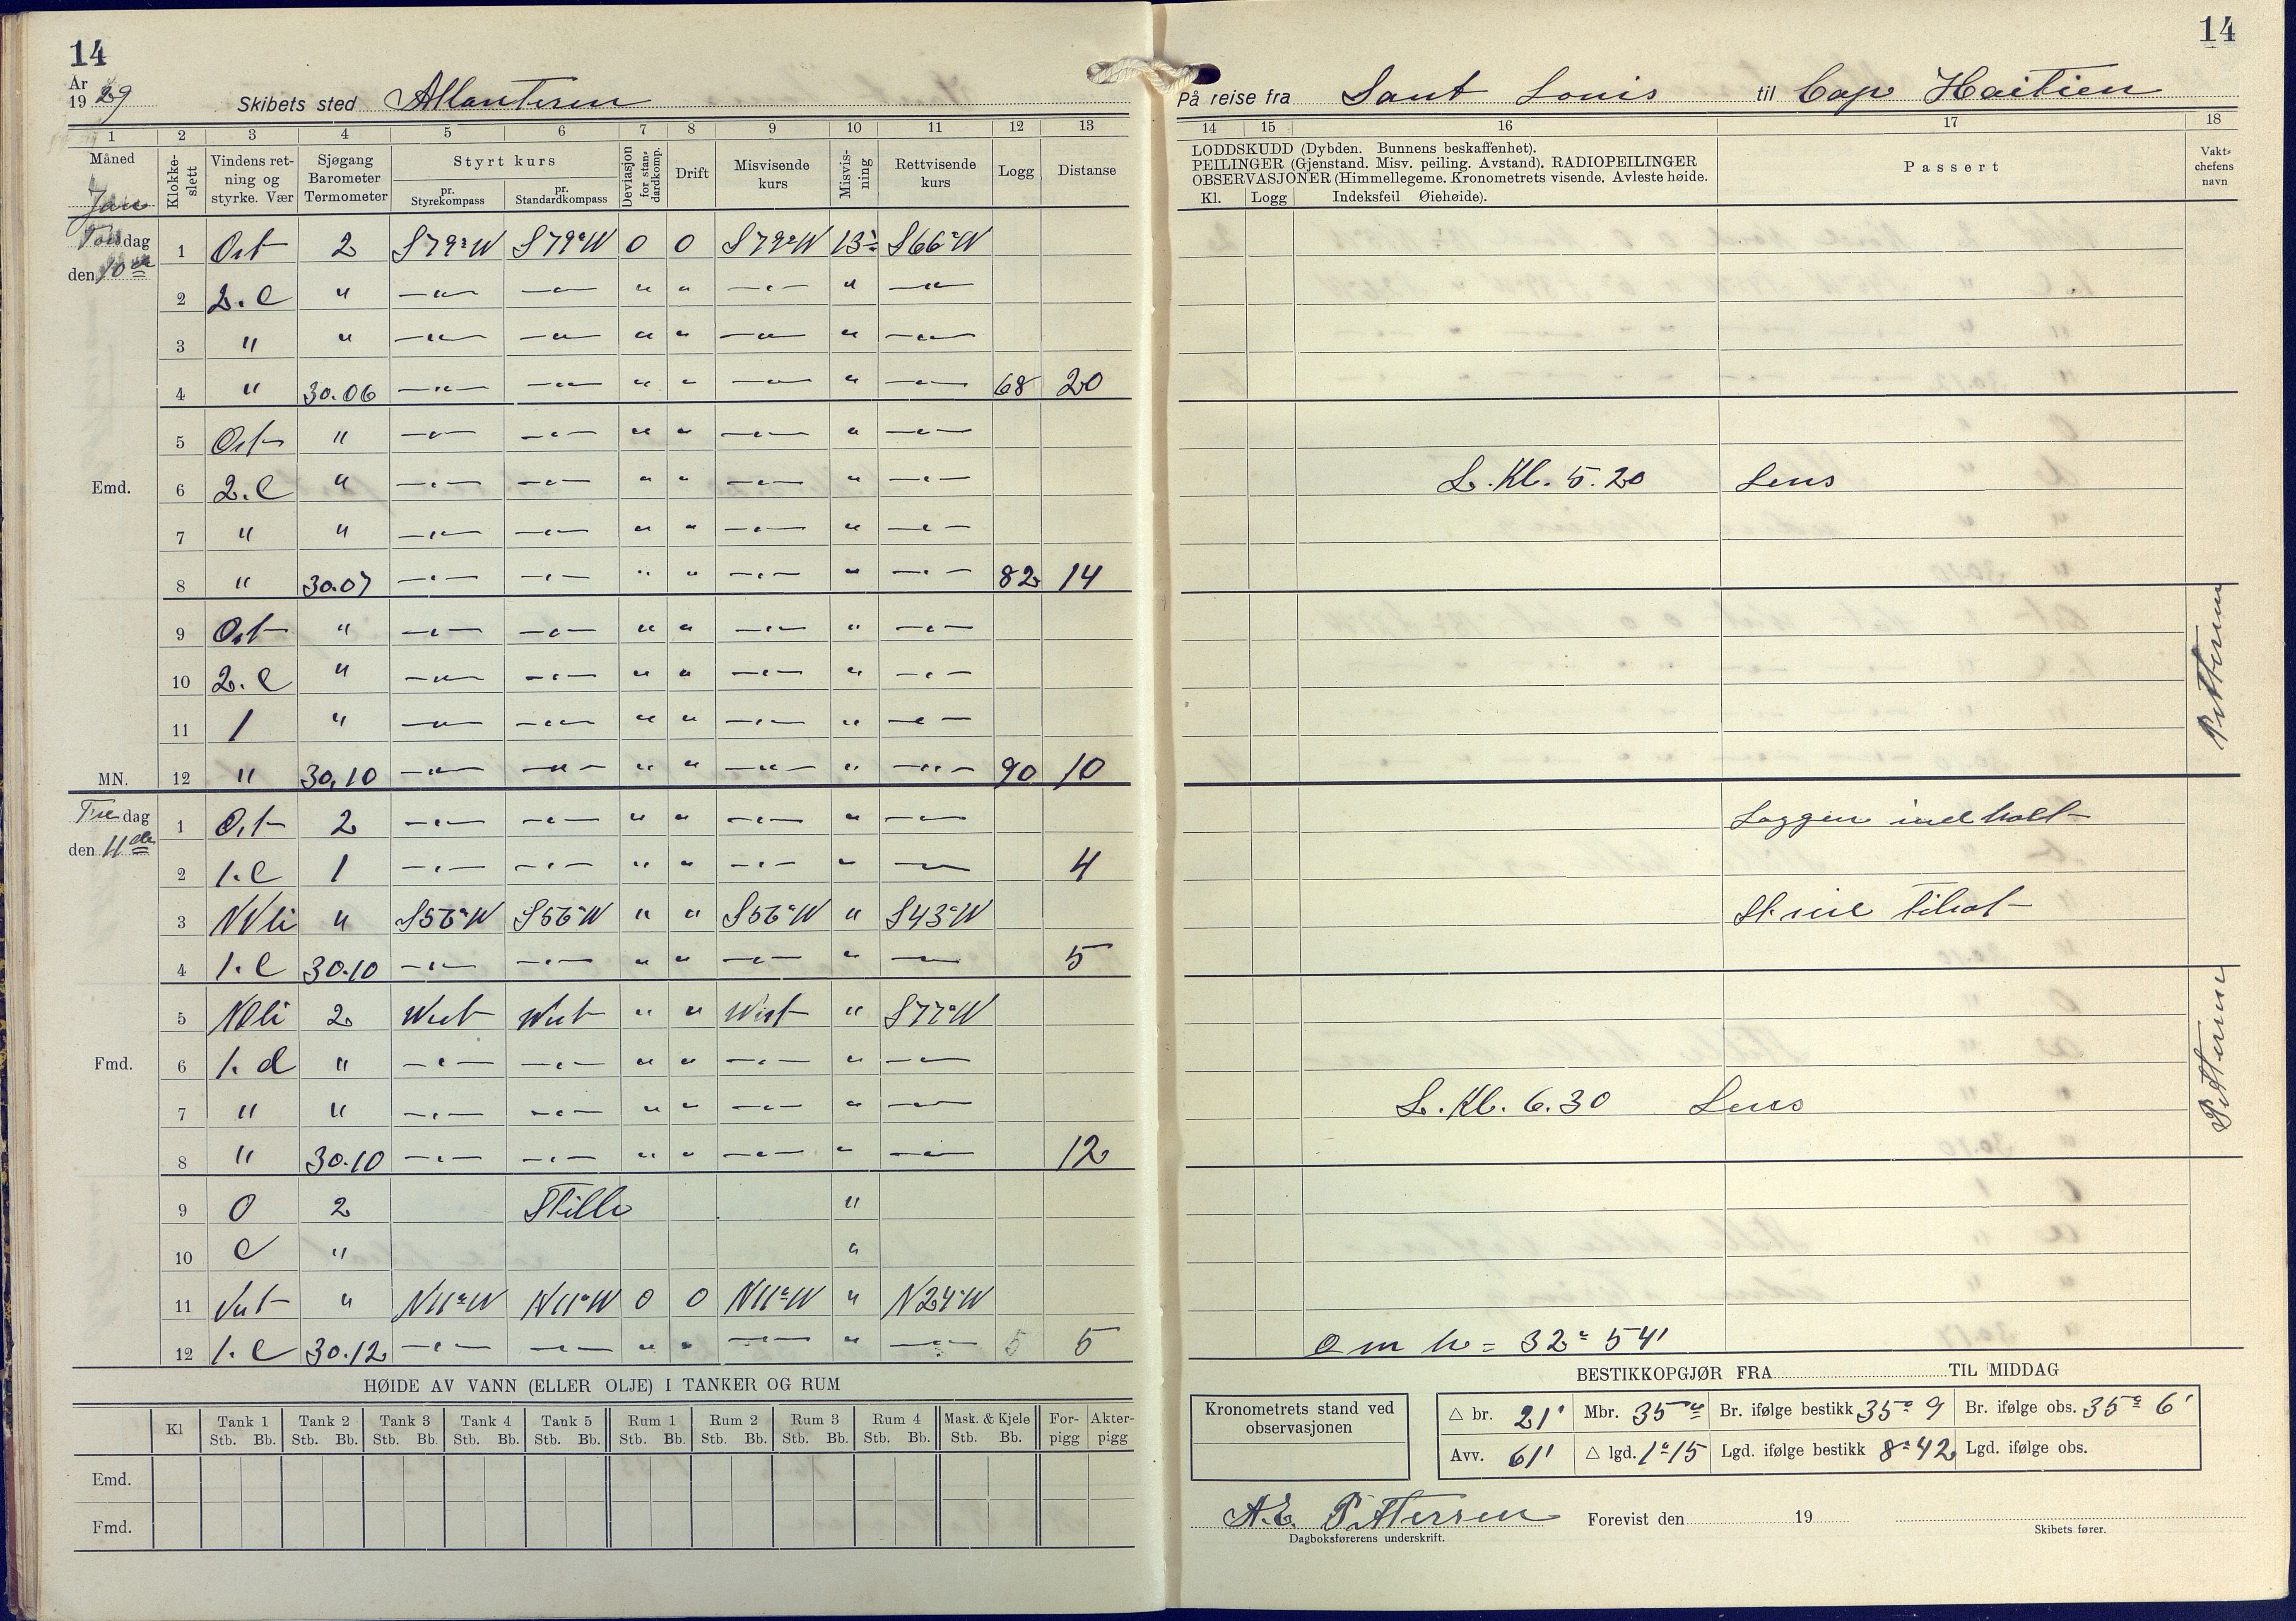 14
År 1929 Skibets sted Atlanteren
1 2 3 4 5 6 7 8 9 10 11 12 13
Måned Klokkeslett Vindens retning og styrke. Vær Sjøgang Barometer Termometer Styrt kurs pr. Styrekompass pr. Standardkompass Deviasjon for standardkomp. Drift Misvisende kurs Misvisning Rettvisende kurs Logg Distanse
Jan
dag den 10de
1 Ost 2 S79°W S79°W 0 0 S79°W 13° S66°W
2 2.C " —"— —"— " " —"— " —"—
3 " " —"— —"— " " —"— " —"—
4 " 30.06 —"— —"— " " —"— " —"— 68 20
5 Ost " —"— —"— " " —"— " —"—
Emd. 6 2.C " —"— —"— " " —"— " —"—
7 " " —"— —"— " " —"— " —"—
8 " 30.07 —"— —"— " " —"— " —"— 82 14
9 Ost " —"— —"— " " —"— " —"—
10 2.C " —"— —"— " " —"— " —"—
11 1 " —"— —"— " " —"— " —"—
MN. 12 " 30,10 —"— —"— " " —"— " —"— 90 10
Fredag den 11de
1 Ost 2 —"— —"— " " —"— " —"—
2 1.C 1 —"— —"— " " —"— " —"— 4
3 NVli " S56°W S56°W " " S56°W " S43°W
4 1.C 30.10 —"— —"— " " —"— " —"— 5
5 NOli 2 West West " " West " S77°W
Fmd. 6 1.d " —"— —"— " " —"— " —"—
7 " " —"— —"— " " —"— " —"—
8 " 30.10 —"— —"— " " —"— " —"— 12
9 0 2 Stille "
10 C " "
11 Vest " N11°W N11°W 0 0 N11°W " N24°W
12 1.C 30.12 —"— —"— " " —"— " —"— 5 5
HØIDE AV VANN (ELLER OLJE) I TANKER OG RUM
Kl Tank 1 Stb. Bb. Tank 2 Stb. Bb. Tank 3 Stb. Bb. Tank 4 Stb. Bb. Tank 5 Stb. Bb. Rum 1 Stb. Bb. Rum 2 Stb. Bb. Rum 3 Stb. Bb. Rum 4 Stb. Bb. Mask. & Kjele Stb. Bb. Forpigg Akterpigg
Emd.
Fmd.
14
På reise fra Sant Louis til Cap Haitien
14 15 16 17 18
LODDSKUDD (Dybden. Bunnens beskaffenhet).
PEILINGER (Gjenstand. Misv. peiling. Avstand). RADIOPEILINGER
OBSERVASJONER (Himmellegeme. Kronometrets visende. Avleste høide.
Kl. Logg Indeksfeil Øiehøide).
Passert
Vaktchefens navn
L. Kl. 5.20 Lens
Pettersen
Loggen indhalt
St. seil tilsat
L. Kl. 6.30 Lens
Pettersen
O m h = 32° 54'
BESTIKKOPGJØR FRA TIL MIDDAG
Kronometrets stand ved observasjonen
△ br. 21' Mbr. 35° Br. ifølge bestikk 35° 9 Br. ifølge obs. 35° 6'
Avv. 61' △ lgd. 1°15 Lgd. ifølge bestikk 8°42 Lgd. ifølge obs.
A.E. Pettersen Forevist den 19
Dagboksførerens underskrift. Skibets fører.